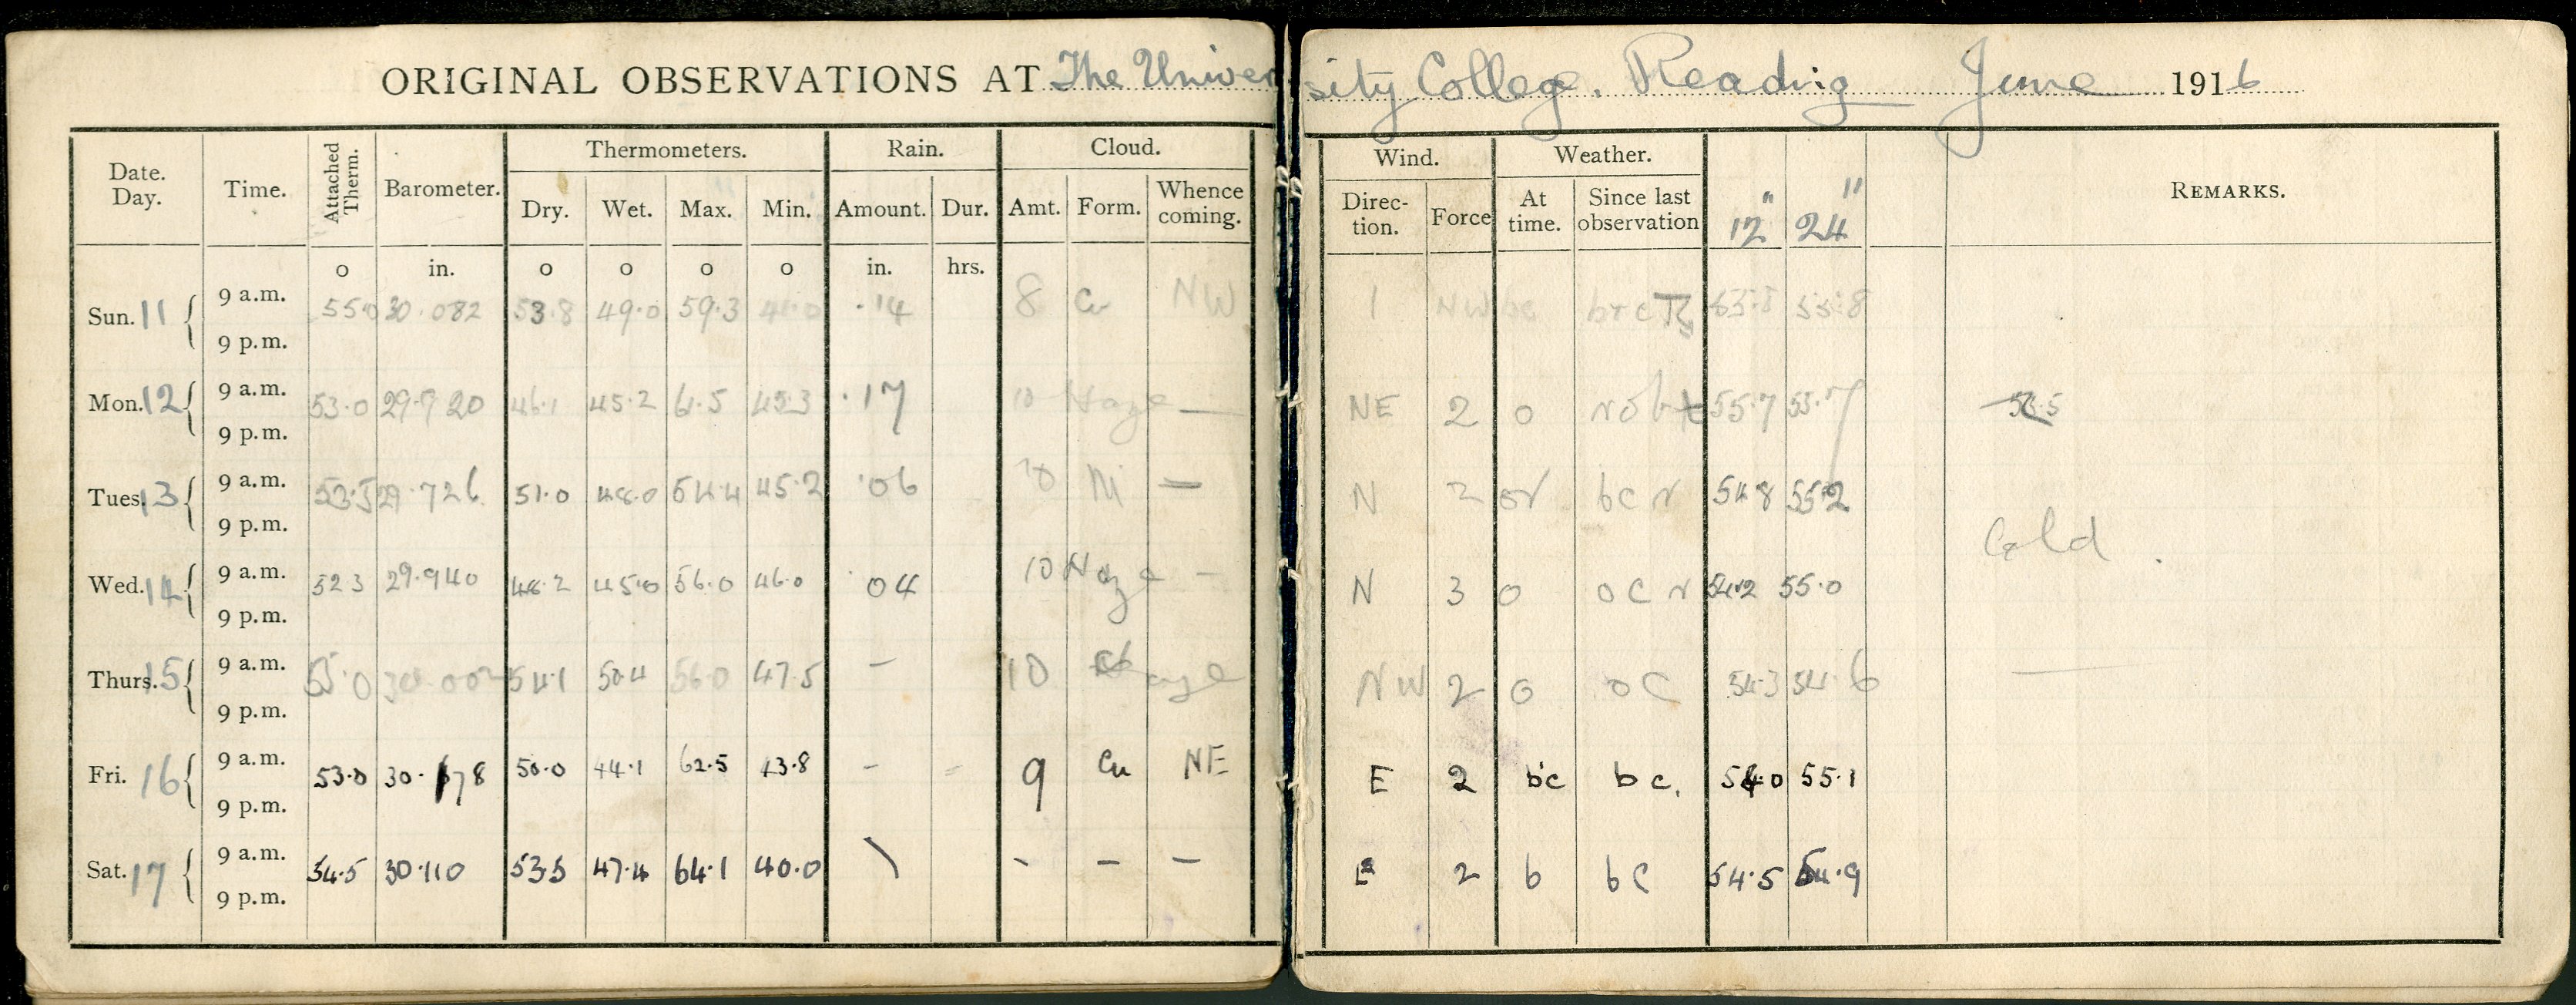 ORIGINAL OBSERVATIONS AT The University College. Reading June 1916
Date. Day. Time. Attached Therm. Barometer. Thermometers. Rain. Cloud. Wind. Weather. 12" 24" REMARKS.
Dry. Wet. Max. Min. Amount. Dur. Amt. Form. Whence coming. Direction. Force At time. Since last observation
o in. o o o o in. hrs.
Sun. 11 9 a.m. 55.0 30.082 53.8 49.0 59.3 .14 8 Cu NW 1 NW bc 55.8
9 p.m.
Mon. 12 9 a.m. 53.0 29.720 46.1 45.2 61.5 45.3 .17 10 Haze — NE 2 o 55.7 55.7
9 p.m.
Tues. 13 9 a.m. 53.5 29.726 51.0 48.0 54.4 45.2 .06 10 Ni — N 2 or bc r 54.8 55.2
9 p.m.
Cold.
Wed. 14 9 a.m. 52.3 29.940 48.2 45.0 56.0 46.0 .04 10 Haze - N 3 o o c r 54.2 55.0
9 p.m.
Thurs. 15 9 a.m. 55.0 30.002 54.1 50.4 56.0 47.5 - 10 NW 2 o o c 54.3 54.6 —
9 p.m.
Fri. 16 9 a.m. 53.0 50.0 44.1 62.5 43.8 - - 9 Cu NE E 2 bc bc. 54.0 55.1
9 p.m.
Sat. 17 9 a.m. 54.5 30.110 53.5 47.4 64.1 40.0 \ - - - E 2 b bc 54.5 54.9
9 p.m.